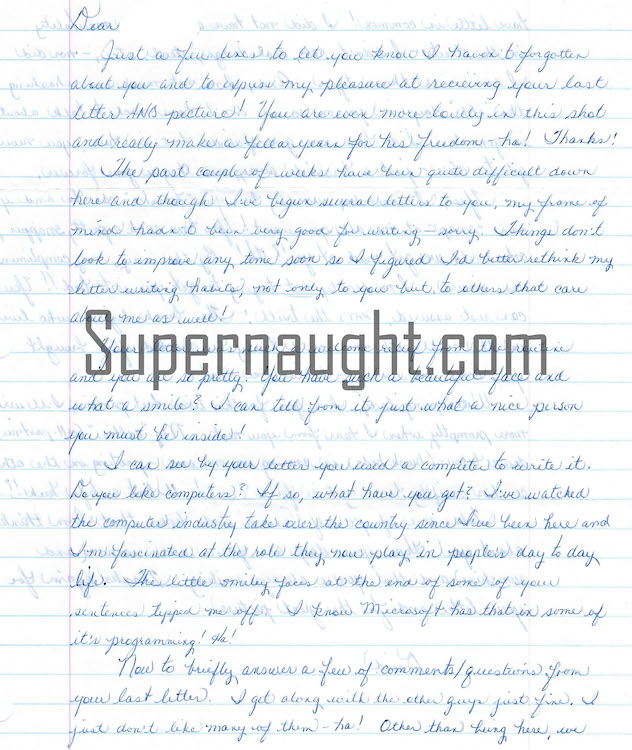 Dear
Just a few lines to let you know I haven't forgotten
about you and to express my pleasure at recieving your last
letter AND picture! You are even more lovely in this shot
and really make a fella years for his freedom - ha! Thanks!
The past couple of weeks have been quite difficult down
here and though I've begun several letters to you, my frame of
mind hadn't been very good for writing - sorry. Things don't
look to improve any time soon so I figured I'd better rethink my
letter writing habits, not only to you but to others that care
about me as well!
Supernaught.com
Your letter was such a welcome relief from the routine
and you are so pretty. You have such a beautiful face and
what a smile? I can tell from it just what a nice person
you must be inside!
I can see by your letter you used a computer to write it.
Do you like computers? If so, what have you got? I've watched
the computer industry take over the country since I've been here and
I'm fascinated at the role they now play in people's day to day
life. The little smiley faces at the end of some of your
sentences tipped me off. I know Microsoft has that in some of
it's programming! Ha!
Now to briefly answer a few of comments/questions from
your last letter. I get along with the other guys just fine. I
just don't like many of them - ha! Other than being here, we